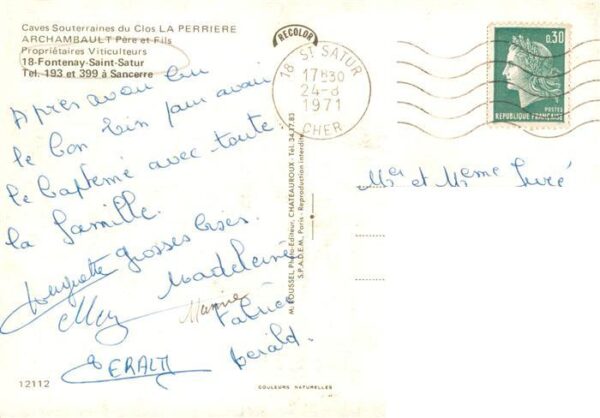 Caves Souterraines du Clos LA PERRIERE
ARCHAMBAULT Père et Fils
Propriétaires Viticulteurs
18-Fontenay-Saint-Satur
Tel. 193 et 399 à Sancerre
Apres avoir bu
le bon bin pour avoir
le baptême avec toute
la famille.
grosses bises.
Madeleine
Mamie
Fabrice
Gerald.
GERALD
12112
COULEURS NATURELLES
M. ROUSSEL, Photo-Editeur, CHATEAUROUX - Tél. 34.17.83
S.P.A.D.E.M. Paris - Reproduction interdite
RECOLOR
18 St SATUR
17H30
24-8
1971
CHER
0,30
POSTES
REPUBLIQUE FRANÇAISE
Mr et Mme